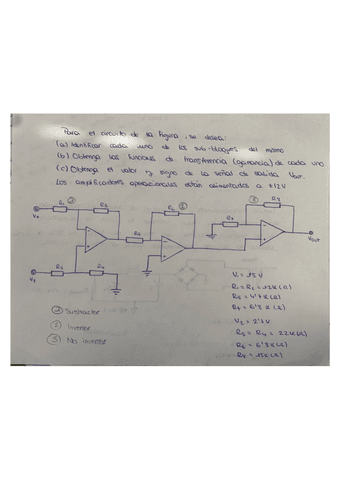 Para el circuito de la figura, se desea:
(a) Identificar cada uno de los sub-bloques del mismo
(b) Obtenga las funciones de transferencia (ganancia) de cada uno
(c) Obtenga el valor y signo de la señal de salida Vout.
Los amplificadores operacionales están alimentados a ±12V
①
R1
R3
V1
R5
R6
②
R7
③
R8
Vout
R2
R4
V2
① Subtractor
② Inversor
③ No inversor
V1 = 1'5 V
R1 = R2 = 12K (Ω)
R5 = 4'7 K (Ω)
R7 = 6'8 K (Ω)
V2 = 2'7 V
R3 = R4 = 22K (Ω)
R6 = 6'8 K (Ω)
R8 = 15K (Ω)